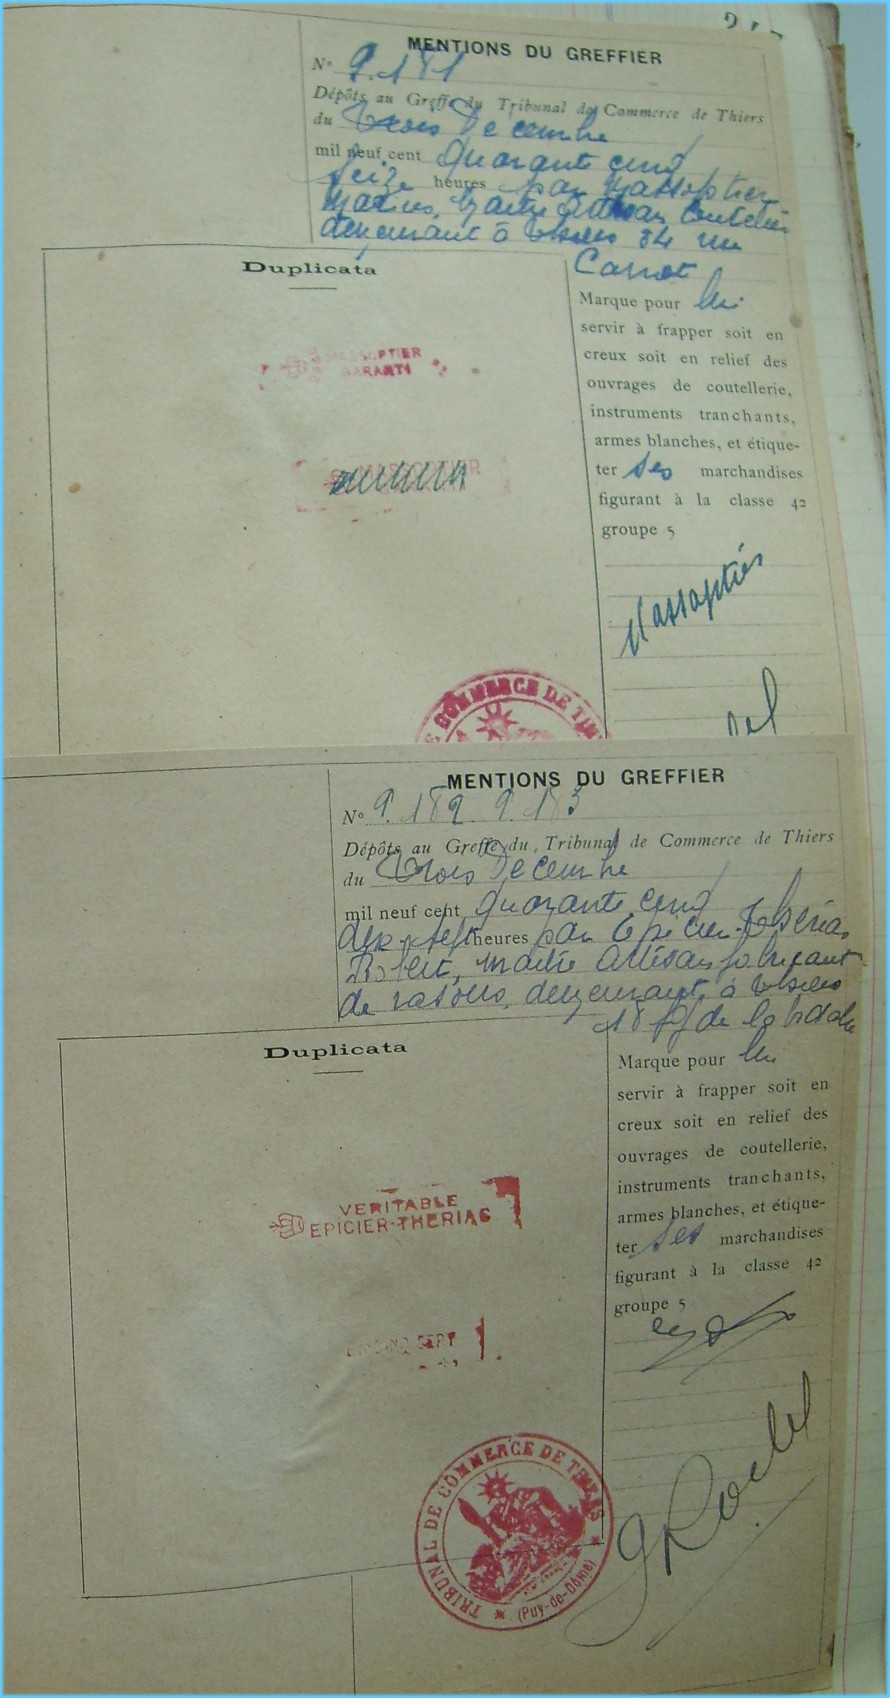 MENTIONS DU GREFFIER
N° 9.181
Dépôts au Greffe du Tribunal de Commerce de Thiers
du Trois Decembre
mil neuf cent quarante cinq
seize heures par Massoptier
Marius, Maitre Artisan Coutelier
demeurant à Thiers 84 rue
Carnot
Duplicata
Marque pour lui
servir à frapper soit en
creux soit en relief des
ouvrages de coutellerie,
instruments tranchants,
armes blanches, et étique-
ter ses marchandises
figurant à la classe 42
groupe 5
MASSOPTIER
GARANTI
Massoptier
COMMERCE DE
MENTIONS DU GREFFIER
N° 9.182. 9.183
Dépôts au Greffe du Tribunal de Commerce de Thiers
du Trois Decembre
mil neuf cent quarante cinq
dix sept heures par Epicier-Therias
Robert, maitre Artisan fabricant
de rasoirs, demeurant à Thiers
18 de la
Duplicata
Marque pour lui
servir à frapper soit en
creux soit en relief des
ouvrages de coutellerie,
instruments tranchants,
armes blanches, et étique-
ter ses marchandises
figurant à la classe 42
groupe 5
VERITABLE
EPICIER-THERIAS
SEPT
TRIBUNAL DE COMMERCE DE THIERS
(Puy-de-Dôme)